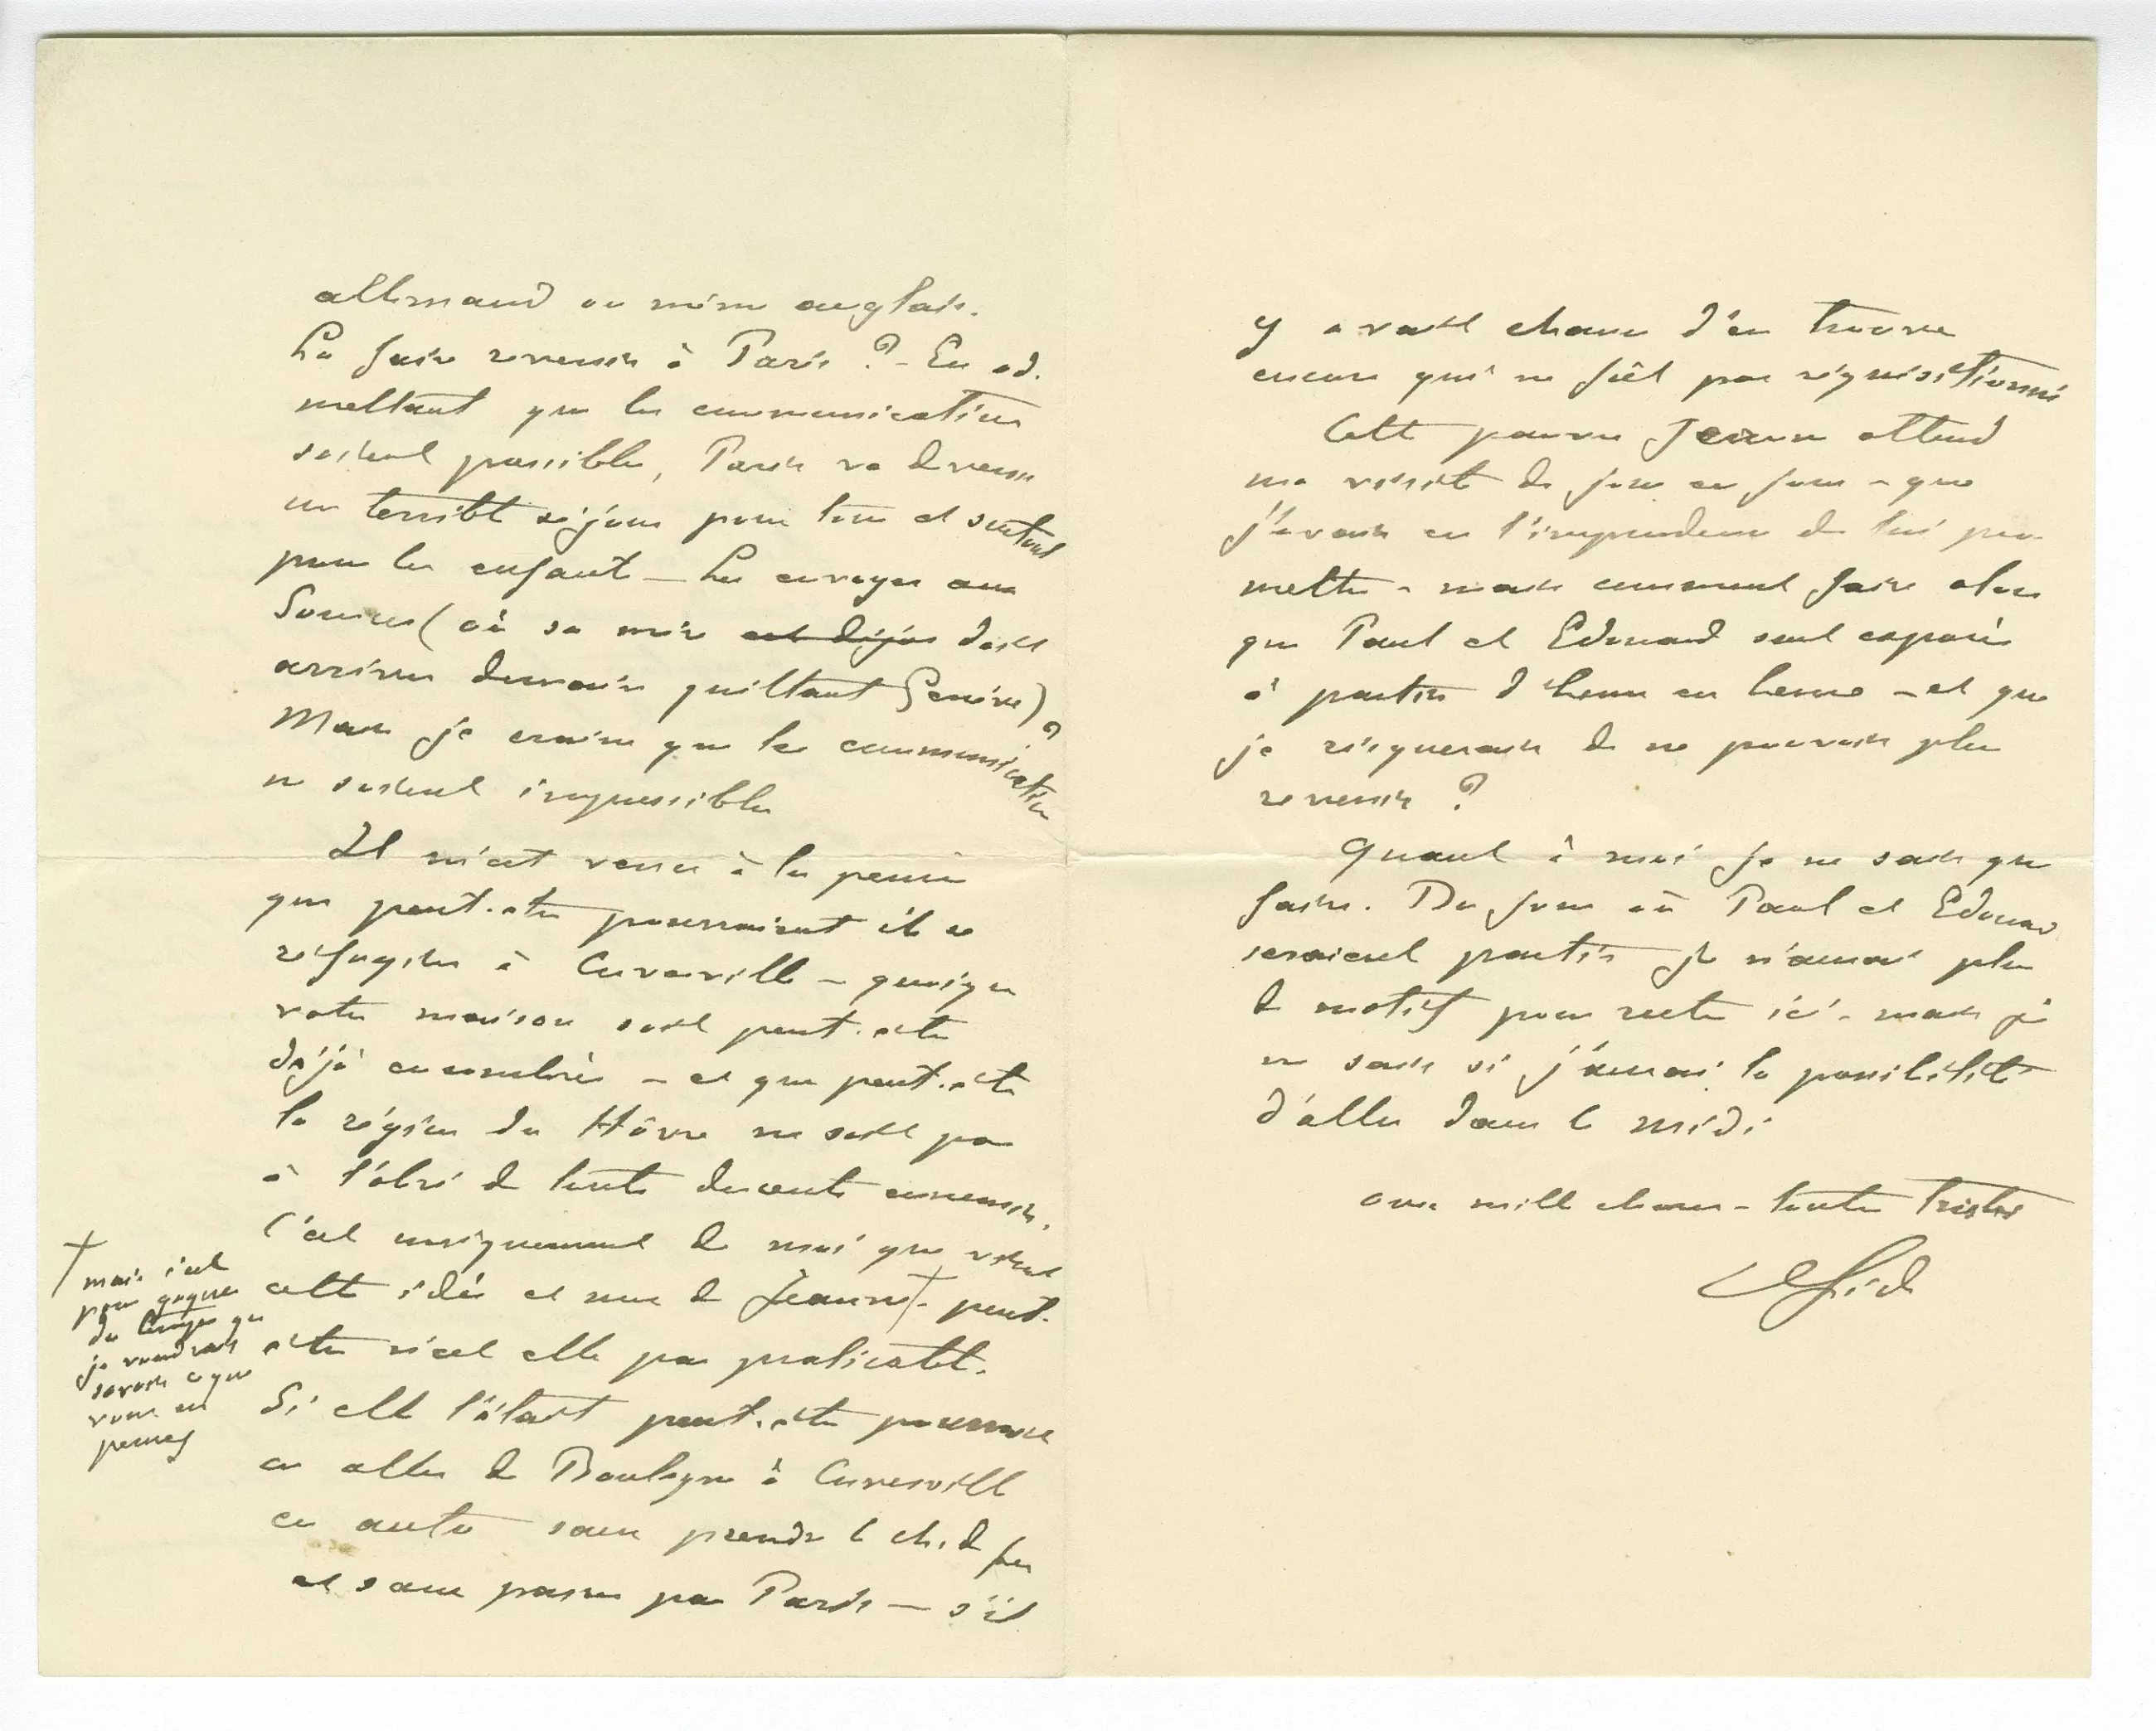 allemand ou même anglais.
La faire revenir à Paris ? - En ad.
mettant que les communications
soient possibles, Paris va devenir
un terrible séjour pour tous et surtout
pour les enfants — Les envoyer aux
Sources (où sa mère est déjà doit
arriver demain quittant Genève) ?
Mais je crains que les communications
ne soient impossibles
Il m'est venu à la pensée
que peut-être pourraient ils se
réfugier à Cuverville - quoique
votre maison soit peut-être
déjà encombrée - et que peut-être
la région du Hâvre ne soit pas
à l'abri de toute descente ennemie.
C'est uniquement de moi que vient
cette idée et non de Jeanne† - peut-
être n'est elle pas praticable.
Si elle l'était peut-être pourrait
on aller de Boulogne à Cuverville
en auto sans prendre le ch. de fer
et sans passer par Paris — s'il
† mais c'est
pour gagner
du temps que
je voudrais
savoir ce que
vous en
pensez
y avait chance d'en trouver
encore qui ne fût pas réquisitionné
Cette pauvre Jeanne attend
ma visite de jour en jour - que
j'avais eu l'imprudence de lui pro
mettre - mais comment faire alors
que Paul et Edouard sont exposés
à partir d'heure en heure - et que
je risquerais de ne pouvoir plus
revenir ?
Quant à moi je ne sais que
faire. Du jour où Paul et Edouard
seraient partis je n'aurais plus
de motif pour rester ici - mais je
ne sais si j'aurai la possibilité
d'aller dans le midi
avec mille choses - toutes tristes
Gide